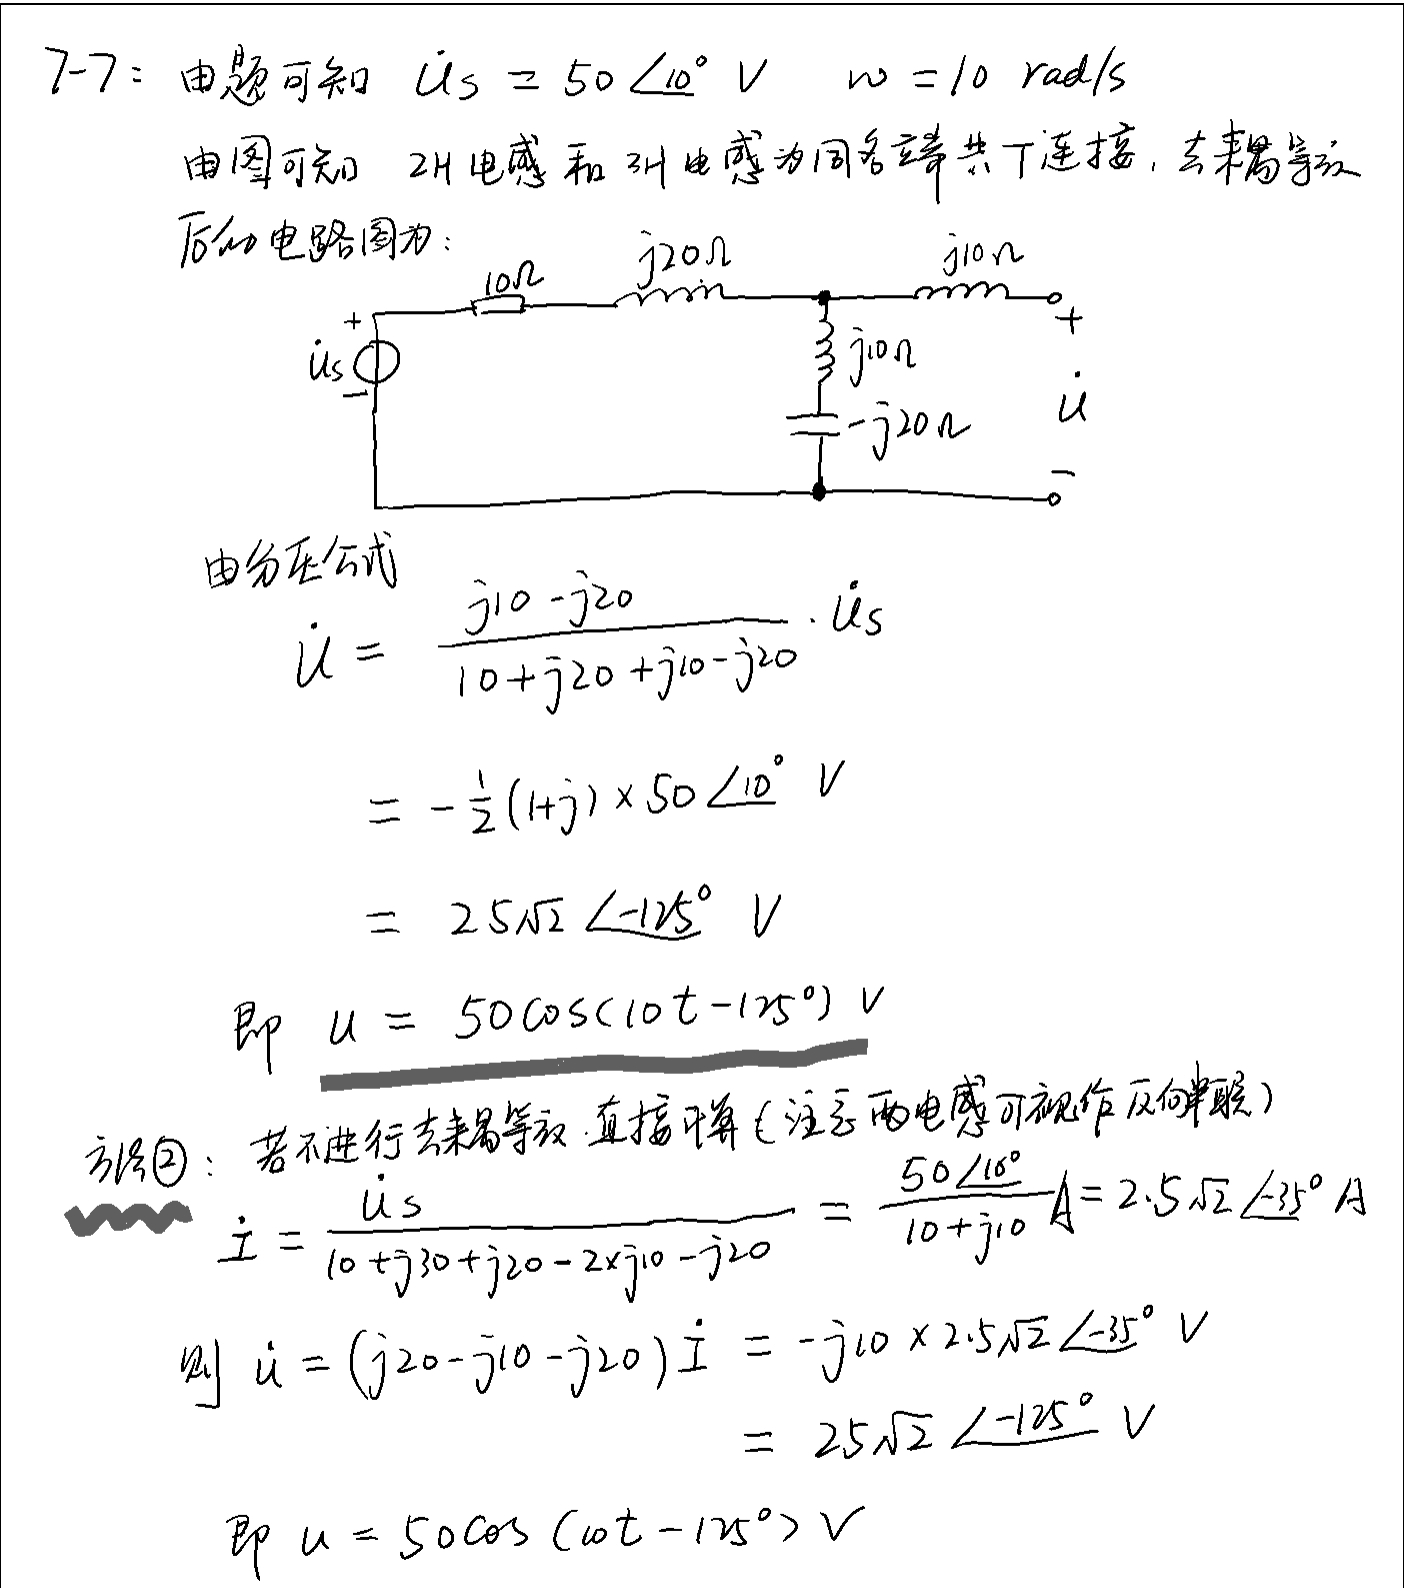 7-7: 由题可知 U̇s = 50∠10° V w = 10 rad/s
由图可知 2H电感和3H电感为同名端共T连接,去耦等效
后的电路图为:
10Ω j20Ω j10Ω
+ U̇s -
j10Ω
-j20Ω
+ U̇ -
由分压公式
U̇ = (j10-j20)/(10+j20+j10-j20) · U̇s
= -1/2(1+j) × 50∠10° V
= 25√2∠-125° V
即 u = 50cos(10t-125°) V
方法②: 若不进行去耦等效,直接计算(注意两电感可视作反向串联)
İ = U̇s/(10+j30+j20-2×j10-j20) = 50∠10°/(10+j10) A = 2.5√2∠-35° A
则 U̇ = (j20-j10-j20)İ = -j10 × 2.5√2∠-35° V
= 25√2∠-125° V
即 u = 50cos(10t-125°) V